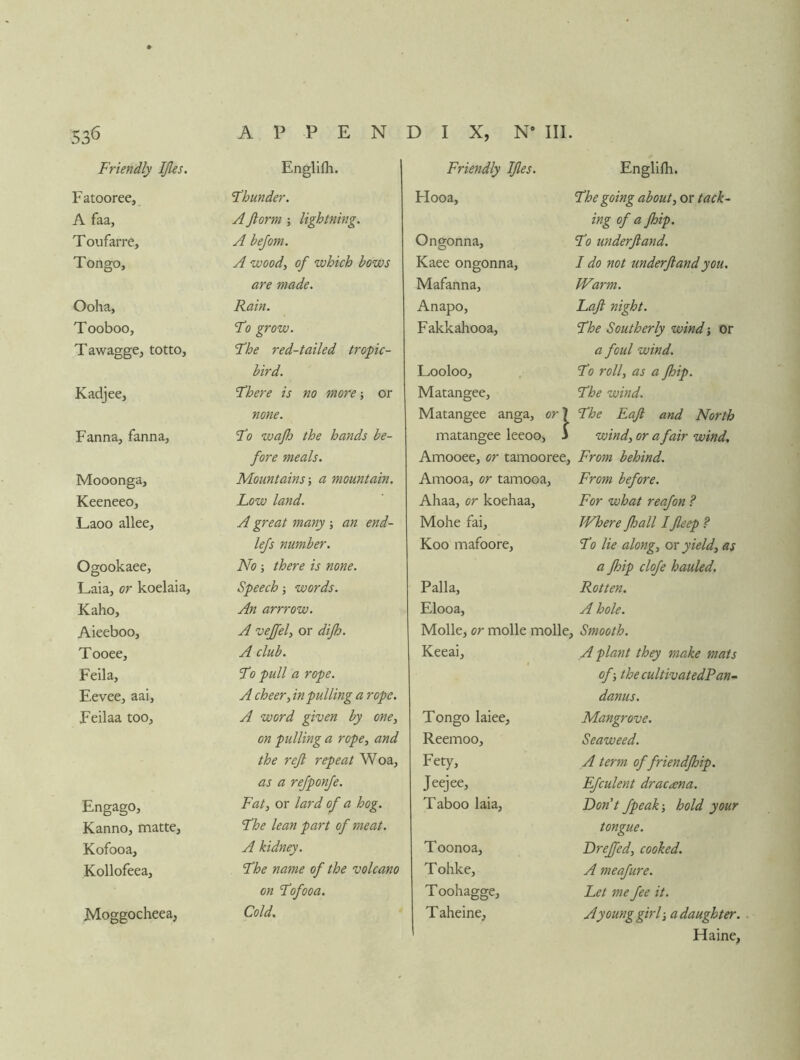 536 APPENDIX, N° III.
Friendly Iſles. Engliſh.
Fatooree, Thunder.
A faa, A ſtorm ; lightning.
Toufarre, A beſom.
Tongo, A wood, of which bows
are made.
Ooha, Rain.
Tooboo, To grow.
Tawagge, totto, The red-tailed tropic-
bird.
Kadjee, There is no more ; or
none.
Fanna, fanna, To waſh the hands be-
fore meals.
Mooonga, Mountains ; a mountain.
Keeneeo, Low land.
Laoo allee, A great many ; an end-
leſs number.
Ogookaee, No ; there is none.
Laia, or koelaia, Speech ; words.
Kaho, An arrrow.
Aieeboo, A veſſel, or diſh.
Tooee, A club.
Feila, To pull a rope.
Eevee, aai, A cheer, in pulling a rope.
Feilaa too, A word given by one,
on pulling a rope, and
the reſt repeat Woa,
as a reſponſe.
Engago, Fat, or lard of a hog.
Kanno, matte, The lean part of meat.
Kofooa, A kidney.
Kollofeea, The name of the volcano
on Tofooa.
Moggocheea, Cold.
Friendly Iſles. Engliſh.
Hooa, The going about, or tack-
ing of a ſhip.
Ongonna, To underſtand.
Kaee ongonna, I do not underſtand you.
Mafanna, Warm.
Anapo, Laſt night.
Fakkahooa, The Southerly wind ; or
a foul wind.
Looloo, To roll, as a ſhip.
Matangee, The wind.
Matangee anga, or } The Eaſt and North
matangee leeoo, } wind, or a fair wind.
Amooee, or tamooree, From behind.
Amooa, or tamooa, From before.
Ahaa, or koehaa, For what reaſon ?
Mohe fai, Where ſhall I ſleep ?
Koo mafoore, To lie along, or yield, as
a ſhip cloſe hauled.
Palla, Rotten.
Elooa, A hole.
Molle, or molle molle, Smooth.
Keeai, A plant they make mats
of ; the cultivated Pan-
danus.
Tongo laiee, Mangrove.
Reemoo, Seaweed.
Fety, A term of friendſhip.
Jeejee, Eſculent dracæna.
Taboo laia, Don't ſpeak ; hold your
tongue.
Toonoa, Dreſſed, cooked.
Tohke, A meaſure.
Toohagge, Let me ſee it.
Taheine, A young girl ; a daughter.
Haine,